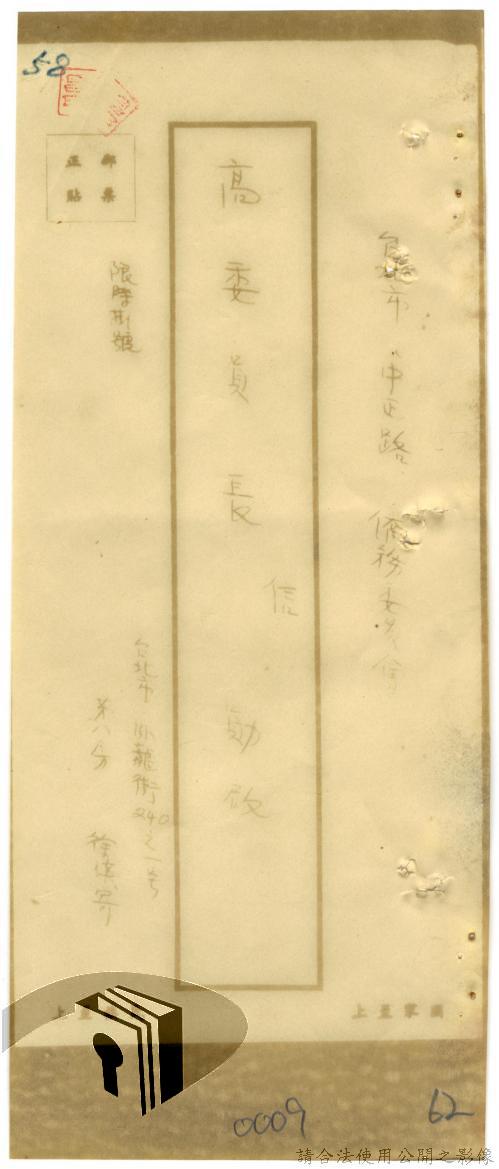 58
台北市 中正路 僑務委員會
高委員長
信
勛啟
郵票
正貼
限時掛號
台北市 臥龍街240之一号
寄
上至家國
上至
0009
62
請合法使用公開之影像